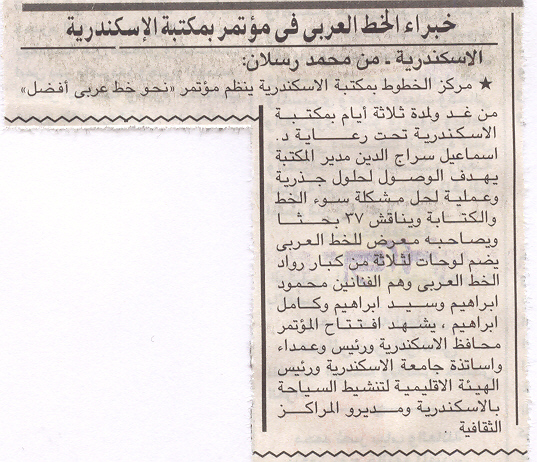 خبراء الخط العربى فى مؤتمر بمكتبة الإسكندرية
الاسكندرية ـ من محمد رسلان:
★ مركز الخطوط بمكتبة الاسكندرية ينظم مؤتمر «نحو خط عربى أفضل»
من غد ولمدة ثلاثة أيام بمكتبة
الاسكندرية تحت رعاية د.
اسماعيل سراج الدين مدير المكتبة
يهدف الوصول لحلول جذرية
وعملية لحل مشكلة سوء الخط
والكتابة ويناقش ٣٧ بحثا
ويصاحبه معرض للخط العربى
يضم لوحات لثلاثة من كبار رواد
الخط العربى وهم الفنانين محمود
ابراهيم وسيد ابراهيم وكامل
ابراهيم ، يشهد افتتاح المؤتمر
محافظ الاسكندرية ورئيس وعمداء
واساتذة جامعة الاسكندرية ورئيس
الهيئة الاقليمية لتنشيط السياحة
بالاسكندرية ومديرو المراكز
الثقافية .